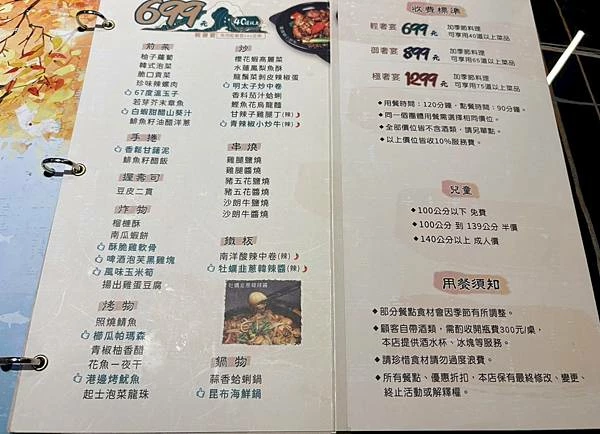 699元
前菜
柚子蘿蔔
韓式泡菜
脆口貢菜
珍味辣螺肉
67度溫玉子
若芽芥末章魚
白蝦甜醋山葵汁
鯡魚籽油醋洋蔥
手捲
香鬆甘藷泥
鯡魚籽醋飯
握壽司
豆皮二貫
炸物
榴槤酥
南瓜蝦餅
酥脆雞軟骨
啤酒泡芙黑雞塊
風味玉米筍
揚出雞蛋豆腐
烤物
照燒鯖魚
櫛瓜帕瑪森
青椒柚香醋
花魚一夜干
港邊烤魷魚
起士泡菜龍珠
炒
櫻花蝦高麗菜
水蓮鳳梨魚酥
龍鬚菜剝皮辣椒蛋
明太子炒中卷
香料奶汁蛤蜊
鰹魚花烏龍麵
甘辣子雞腿丁(辣)
青辣椒小炒牛(辣)
串燒
雞腿鹽燒
雞腿醬燒
豬五花鹽燒
豬五花醬燒
沙朗牛鹽燒
沙朗牛醬燒
鐵板
南洋酸辣中卷(辣)
牡蠣韭蔥韓辣醬(辣)
牡蠣韭蔥韓辣醬
鍋物
蒜香蛤蜊鍋
昆布海鮮鍋
收費標準
輕奢宴 699元 加季節料理
可享用40道以上菜品
御奢宴 899元 加季節料理
可享用65道以上菜品
極奢宴 1299元 加季節料理
可享用75道以上菜品
◆用餐時間：120分鐘，點餐時間：90分鐘。
◆同一個團體用餐需選擇相同價位。
◆全部價位皆不含酒類，請另單點。
◆以上價位皆收10%服務費。
兒童
◆100公分以下 免費
◆100公分 到 139公分 半價
◆140公分以上 成人價
用餐須知
◆部分餐點食材會因季節有所調整。
◆顧客自帶酒類，需酌收開瓶費300元/桌，
本店提供酒水杯、冰塊等服務。
◆請珍惜食材請勿過度浪費。
◆所有餐點、優惠折扣，本店保有最終修改、變更、
終止活動或解釋權。